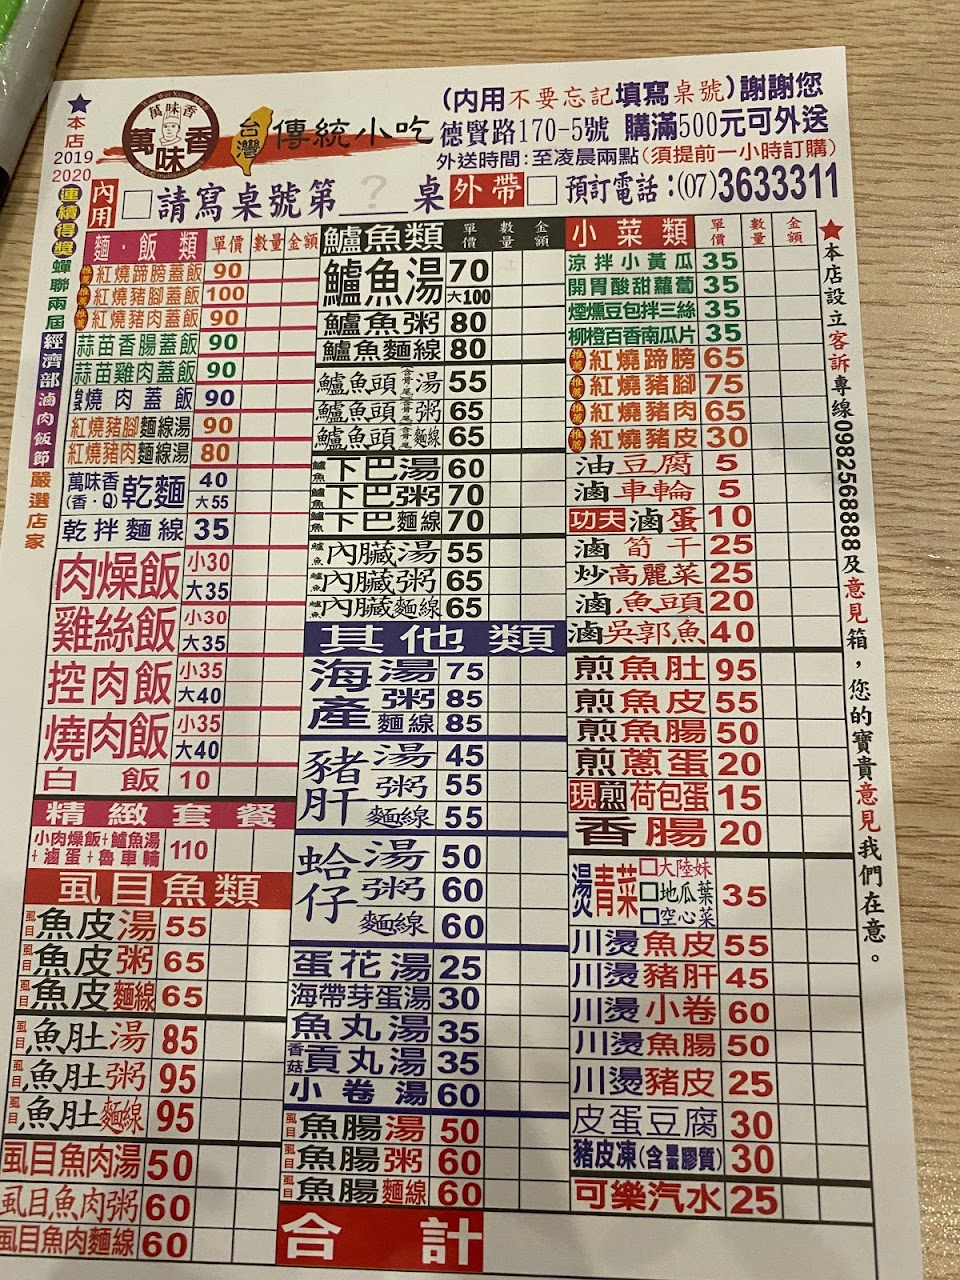 萬味香
萬味香
台灣 傳統小吃
(內用不要忘記填寫桌號)謝謝您
德賢路170-5號 購滿500元可外送
外送時間:至凌晨兩點(須提前一小時訂購)
內用 □請寫桌號第__?__桌 外帶 □ 預訂電話:(07)3633311
★本店2019 2020連續得獎蟬聯兩屆經濟部滷肉飯節嚴選店家
麵·飯類 單價 數量 金額
推薦 紅燒蹄膀蓋飯 90
推薦 紅燒豬腳蓋飯 100
推薦 紅燒豬肉蓋飯 90
蒜苗香腸蓋飯 90
蒜苗雞肉蓋飯 90
燒肉蓋飯 90
紅燒豬腳麵線湯 90
紅燒豬肉麵線湯 80
萬味香(香·Q)乾麵 40 大55
乾拌麵線 35
肉燥飯 小30 大35
雞絲飯 小30 大35
控肉飯 小35 大40
燒肉飯 小35 大40
白飯 10
精緻套餐
小肉燥飯+鱸魚湯+滷蛋+魯車輪 110
虱目魚類
虱目魚皮湯 55
虱目魚皮粥 65
虱目魚皮麵線 65
虱目魚肚湯 85
虱目魚肚粥 95
虱目魚肚麵線 95
虱目魚肉湯 50
虱目魚肉粥 60
虱目魚肉麵線 60
鱸魚類 單價 數量 金額
鱸魚湯 70 大100
鱸魚粥 80
鱸魚麵線 80
鱸魚頭(含骨尾)湯 55
鱸魚頭(含骨尾)粥 65
鱸魚頭(含骨尾)麵線 65
鱸魚下巴湯 60
鱸魚下巴粥 70
鱸魚下巴麵線 70
鱸魚內臟湯 55
鱸魚內臟粥 65
鱸魚內臟麵線 65
其他類
海產 湯 75
粥 85
麵線 85
豬肝 湯 45
粥 55
麵線 55
蛤仔 湯 50
粥 60
麵線 60
蛋花湯 25
海帶芽蛋湯 30
魚丸湯 35
香菇貢丸湯 35
小卷湯 60
虱目魚腸湯 50
虱目魚腸粥 60
虱目魚腸麵線 60
合計
小菜類 單價 數量 金額
涼拌小黃瓜 35
開胃酸甜蘿蔔 35
煙燻豆包拌三絲 35
柳橙百香南瓜片 35
推薦 紅燒蹄膀 65
推薦 紅燒豬腳 75
推薦 紅燒豬肉 65
推薦 紅燒豬皮 30
油豆腐 5
滷車輪 5
功夫滷蛋 10
滷筍干 25
炒高麗菜 25
滷魚頭 20
滷吳郭魚 40
煎魚肚 95
煎魚皮 55
煎魚腸 50
煎蔥蛋 20
現煎荷包蛋 15
香腸 20
燙青菜 □大陸妹 □地瓜葉 □空心菜 35
川燙魚皮 55
川燙豬肝 45
川燙小卷 60
川燙魚腸 50
川燙豬皮 25
皮蛋豆腐 30
豬皮凍(含豐膠質) 30
可樂汽水 25
★本店設立客訴專線0982568888及意見箱,您的寶貴意見我們在意。